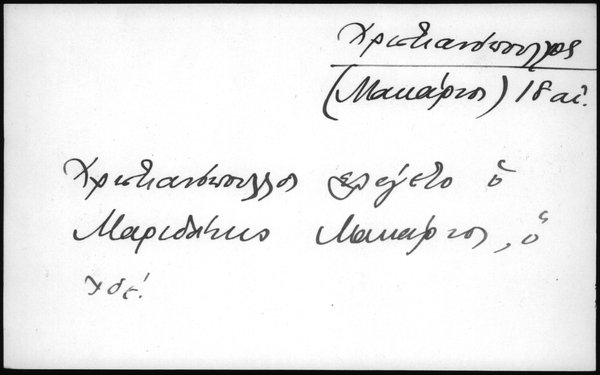 Χριστιανόπουλλος
(Μακάριος) 18 αἰ.
Χριστιανόπουλλος ἐλέγετο ὁ
Μακάριος, ὁ